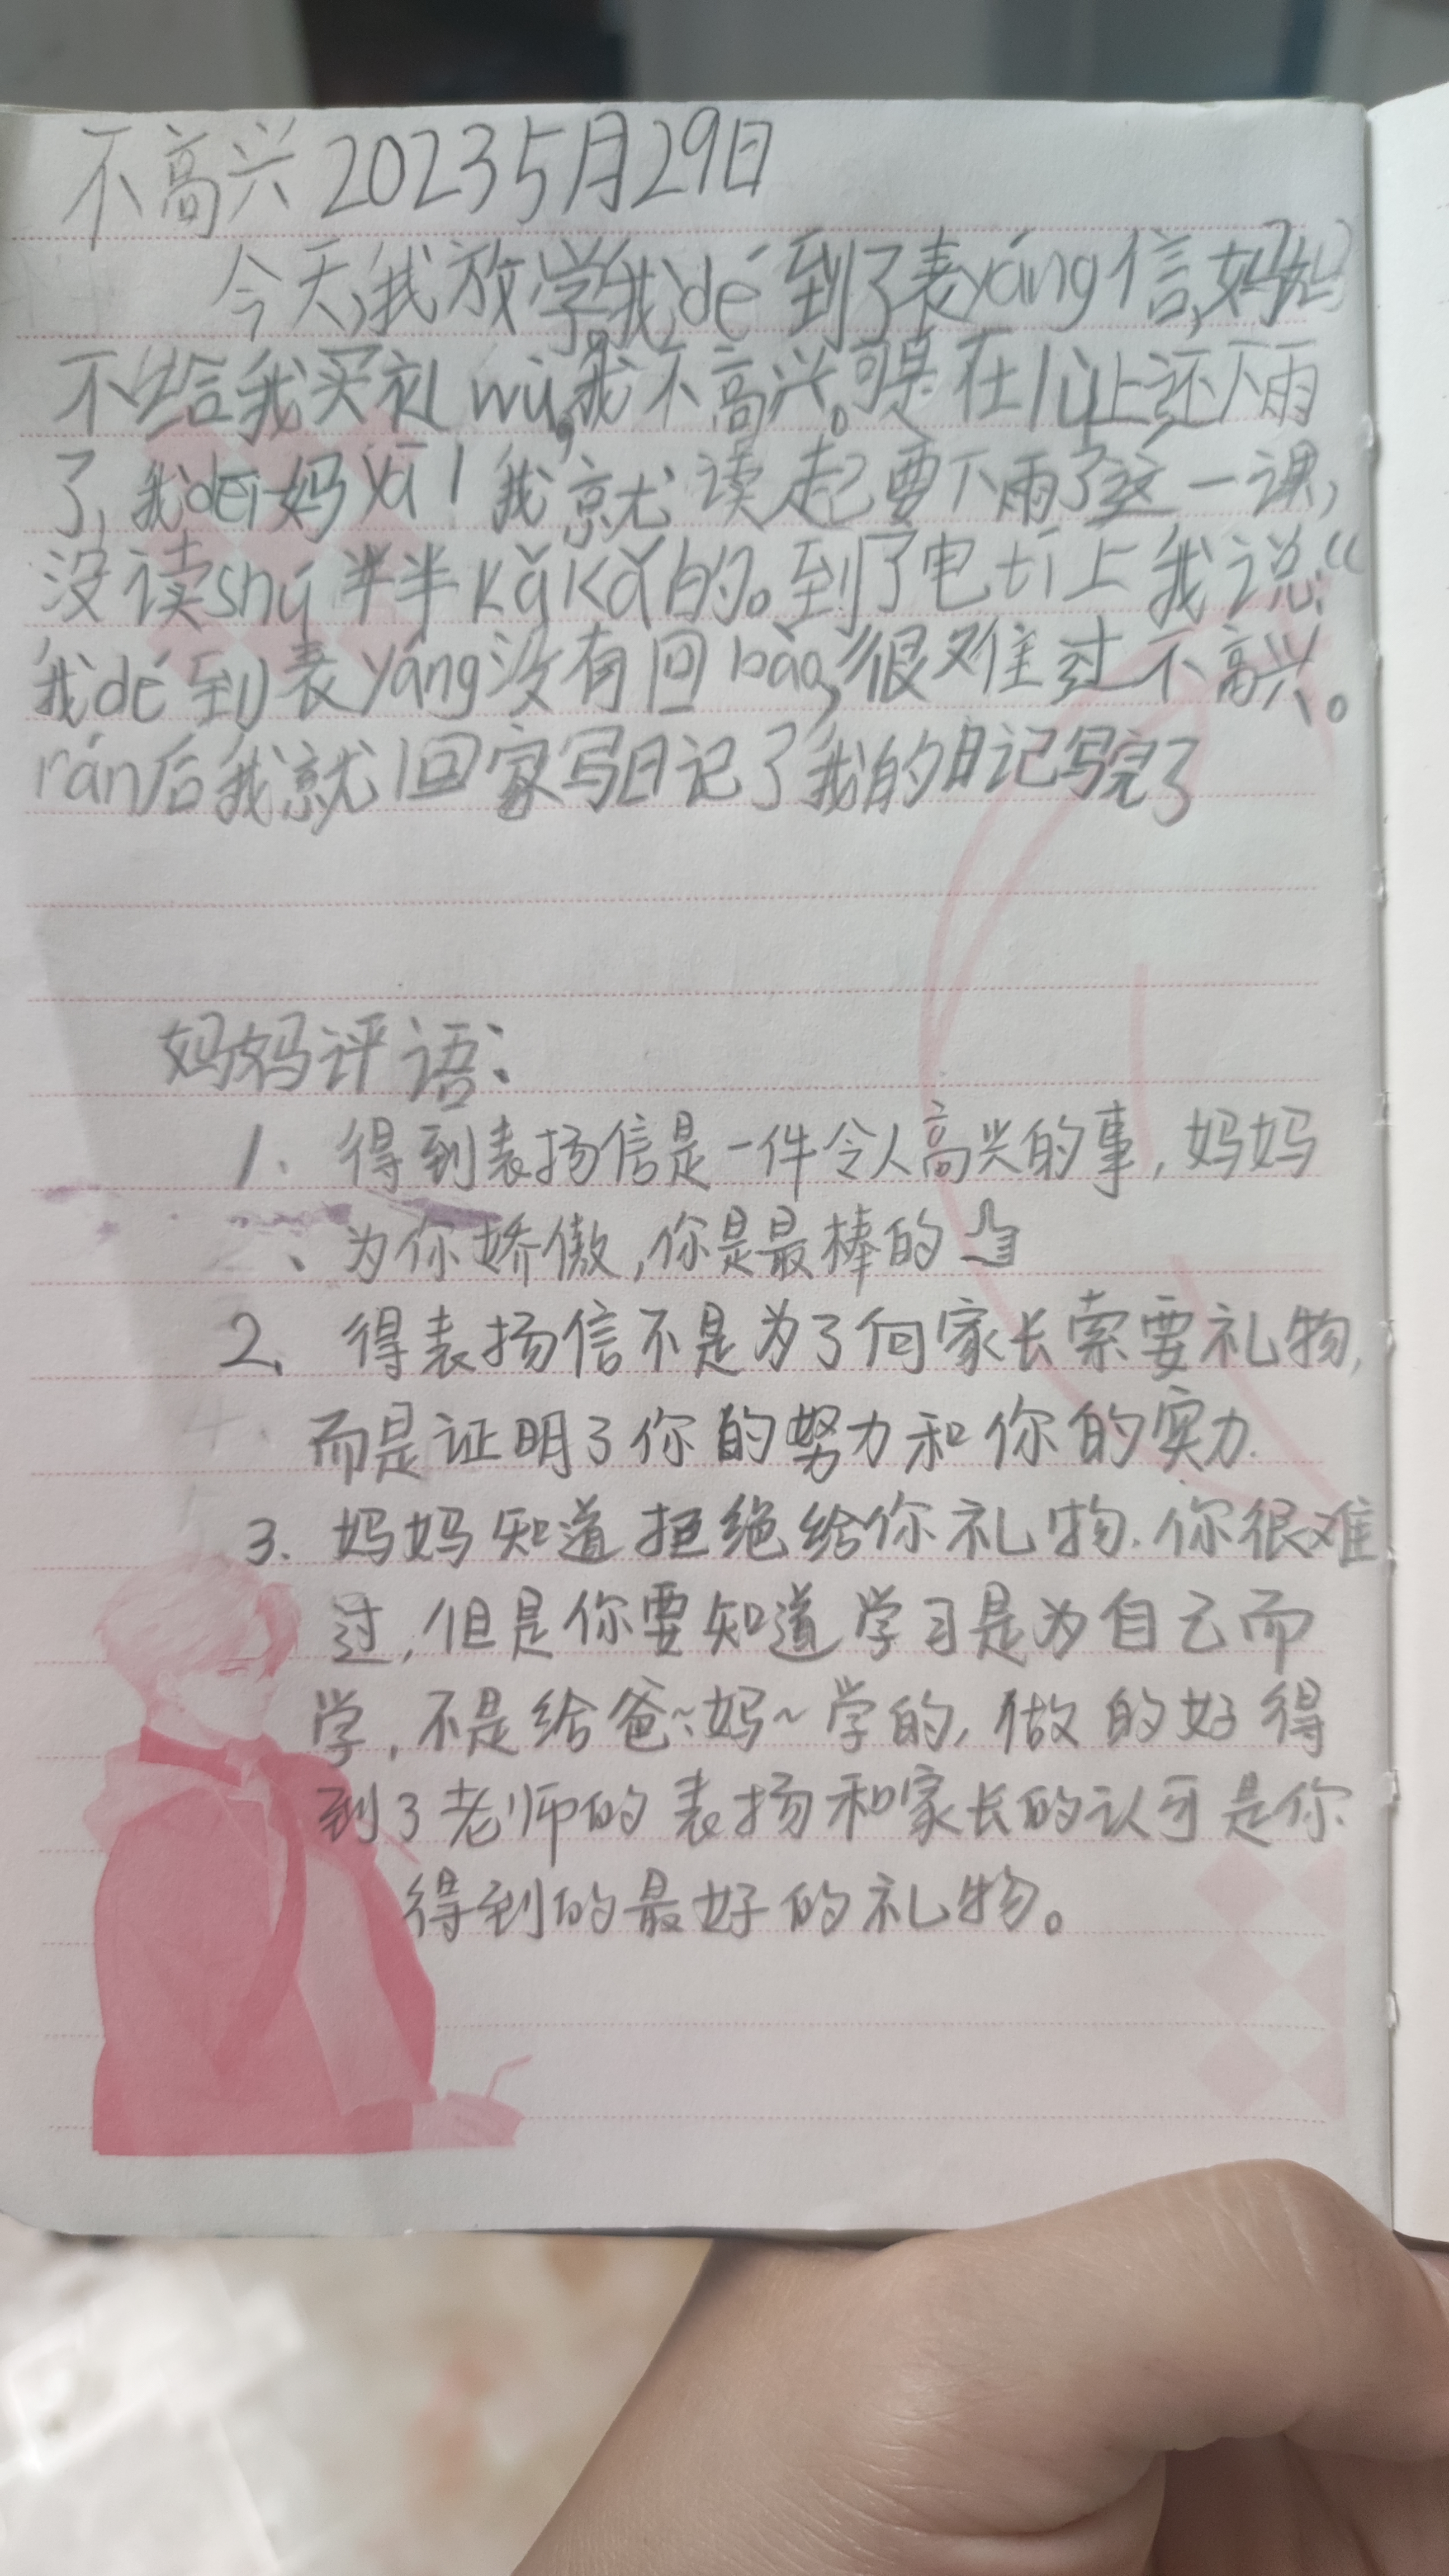 不高兴 2023 5月29日
今天,我放学,我dé到了表yáng信,妈妈
不给我买礼wù,我不高兴。可是在儿上还下雨
了,我dēi妈yā!我就读起要下雨了这一课,
没读shú半半kǎkǎ的。到了电tī上我说:“
我dé到表yáng没有回bào,很难过不高兴。
rán后我就回家写日记了我的日记写完了
妈妈评语:
1、得到表扬信是一件令人高兴的事,妈妈
、为你娇傲,你是最棒的
2、得表扬信不是为了向家长索要礼物,
而是证明了你的努力和你的实力.
3.妈妈知道拒绝给你礼物.你很难
过,但是你要知道学习是为自己而
学,不是给爸~妈~学的,做的好得
到了老师的表扬和家长的认可是你
得到的最好的礼物。